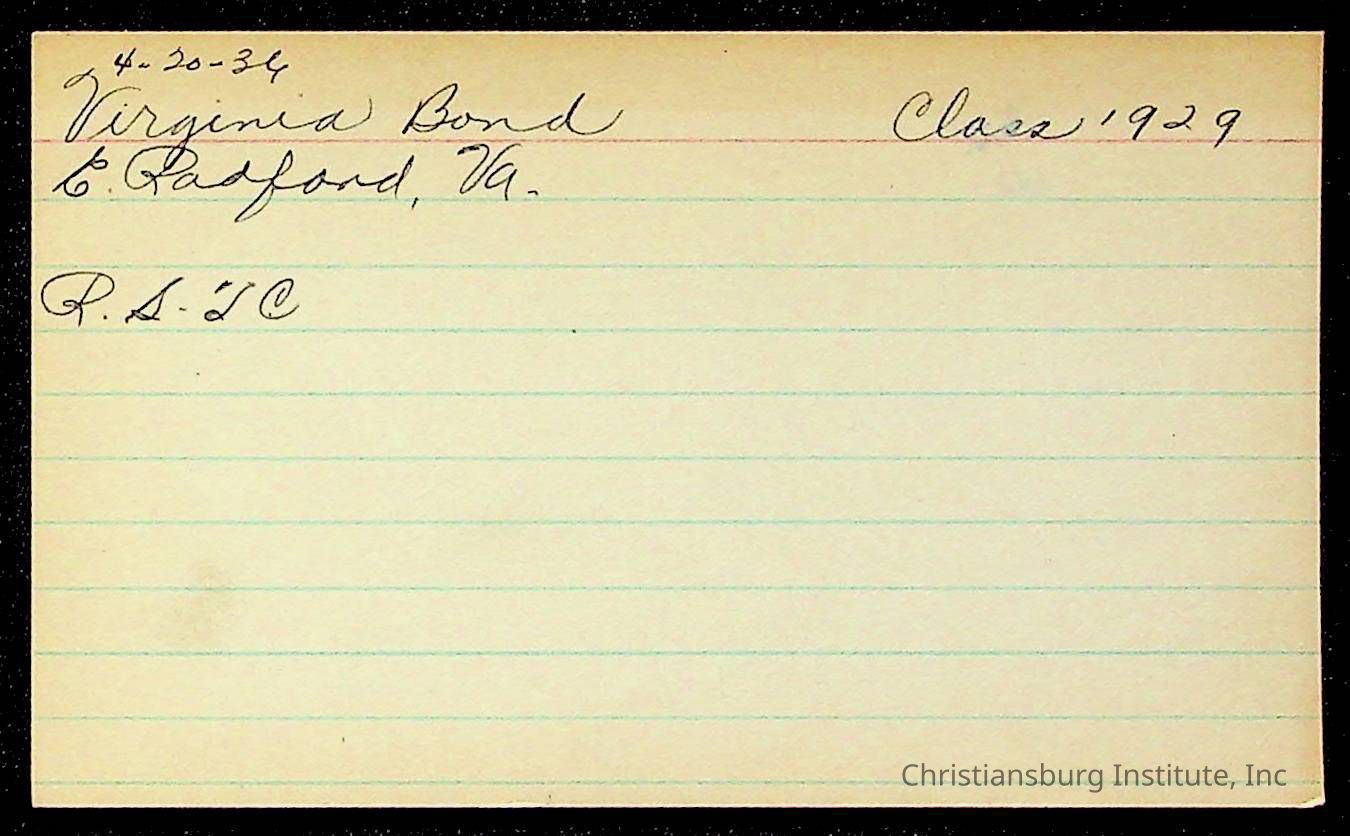 4-20-36
Virginia Bond Class '1929
E. Radford, Va.
R. S. T C
Christiansburg Institute, Inc